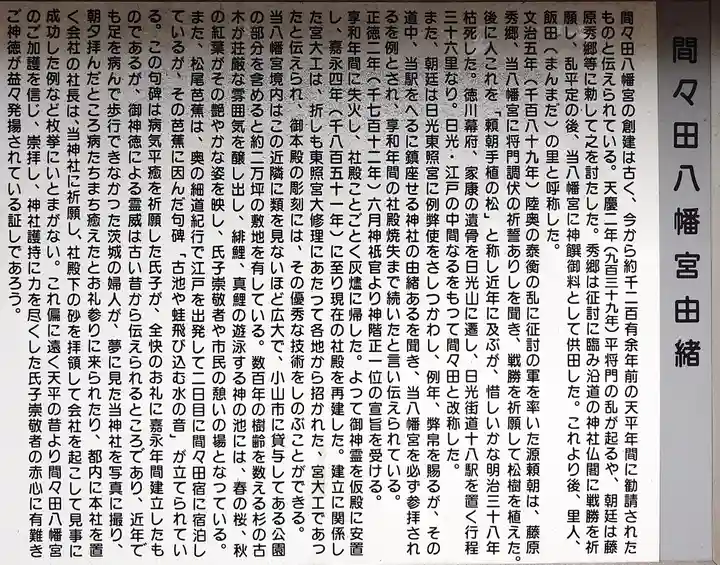 間々田八幡宮由緒
間々田八幡宮の創建は古く、今から約千二百有余年前の天平年間に勧請された
ものと伝えられている。天慶二年(九百三十九年)平将門の乱が起るや、朝廷は藤
原秀郷等に勅して之を討たした。秀郷は征討に臨み沿道の神社仏閣に戦勝を祈
願し、乱平定の後、当八幡宮に神饌御料として供田した。これより後、里人、
飯田(まんまだ)の里と呼称した。
文治五年(千百八十九年)陸奥の泰衡の乱に征討の軍を率いた源頼朝は、藤原
秀郷、当八幡宮に将門調伏の祈誓ありしを聞き、戦勝を祈願して松樹を植えた。
後に人これを「頼朝手植の松」と称し近年に及ぶが、惜しいかな明治三十八年
枯死した。徳川幕府、家康の遺骨を日光山に遷し、日光街道十八駅を置く行程
三十六里なり。日光・江戸の中間なるをもつて間々田と改称した。
また、朝廷は日光東照宮に例弊使をさしつかわし、例年、弊帛を賜るが、その
道中、当駅をへるに鎮座せる神社の由緒あるを聞き、当八幡宮を必ず参拝され
るを例とされ、享和年間の社殿焼失まで続いたと言い伝えられている。
正徳二年(千七百十二年)六月神祇官より神階正一位の宣旨を受ける。
享和年間に失火し、社殿ことごとく灰燼に帰した。よつて御神霊を仮殿に安置
し、嘉永四年(千八百五十一年)に至り現在の社殿を再建した。建立に関係し
た宮大工は、折しも東照宮大修理にあたつて各地から招かれた、宮大工であつ
たと伝えられ、御本殿の彫刻には、その優秀な技術をしのぶことができる。
当八幡宮境内はこの近隣に類を見ないほど広大で、小山市に貸与してある公園
の部分を含めると約二万坪の敷地を有している。数百年の樹齢を数える杉の古
木が荘厳な雰囲気を醸し出し、緋鯉、真鯉の遊泳する神の池には、春の桜、秋
の紅葉がその艶やかな姿を映し、氏子崇敬者や市民の憩いの場となつている。
また、松尾芭蕉は、奥の細道紀行で江戸を出発して二日目に間々田宿に宿泊し
ているが、その芭蕉に因んだ句碑「古池や蛙飛び込む水の音」が立てられてい
る。この句碑は病気平癒を祈願した氏子が、全快のお礼に嘉永年間建立したも
のであるが、御神徳による霊威は古い昔から伝えられるところであり、近年で
も足を病んで歩行できなかつた茨城の婦人が、夢に見た当神社を写真に撮り、
朝夕拝んだところ病たちまち癒えたとお礼参りに来られたり、都内に本社を置
く会社の社長は、当神社に祈願し、社殿下の砂を拝領して会社を起こして見事に
成功した例など枚挙にいとまがない。これ偏に遠く天平の昔より間々田八幡宮
のご加護を信じ、崇拝し、神社護持に力を尽くした氏子崇敬者の赤心に有難き
ご神徳が益々発揚されている証しであろう。